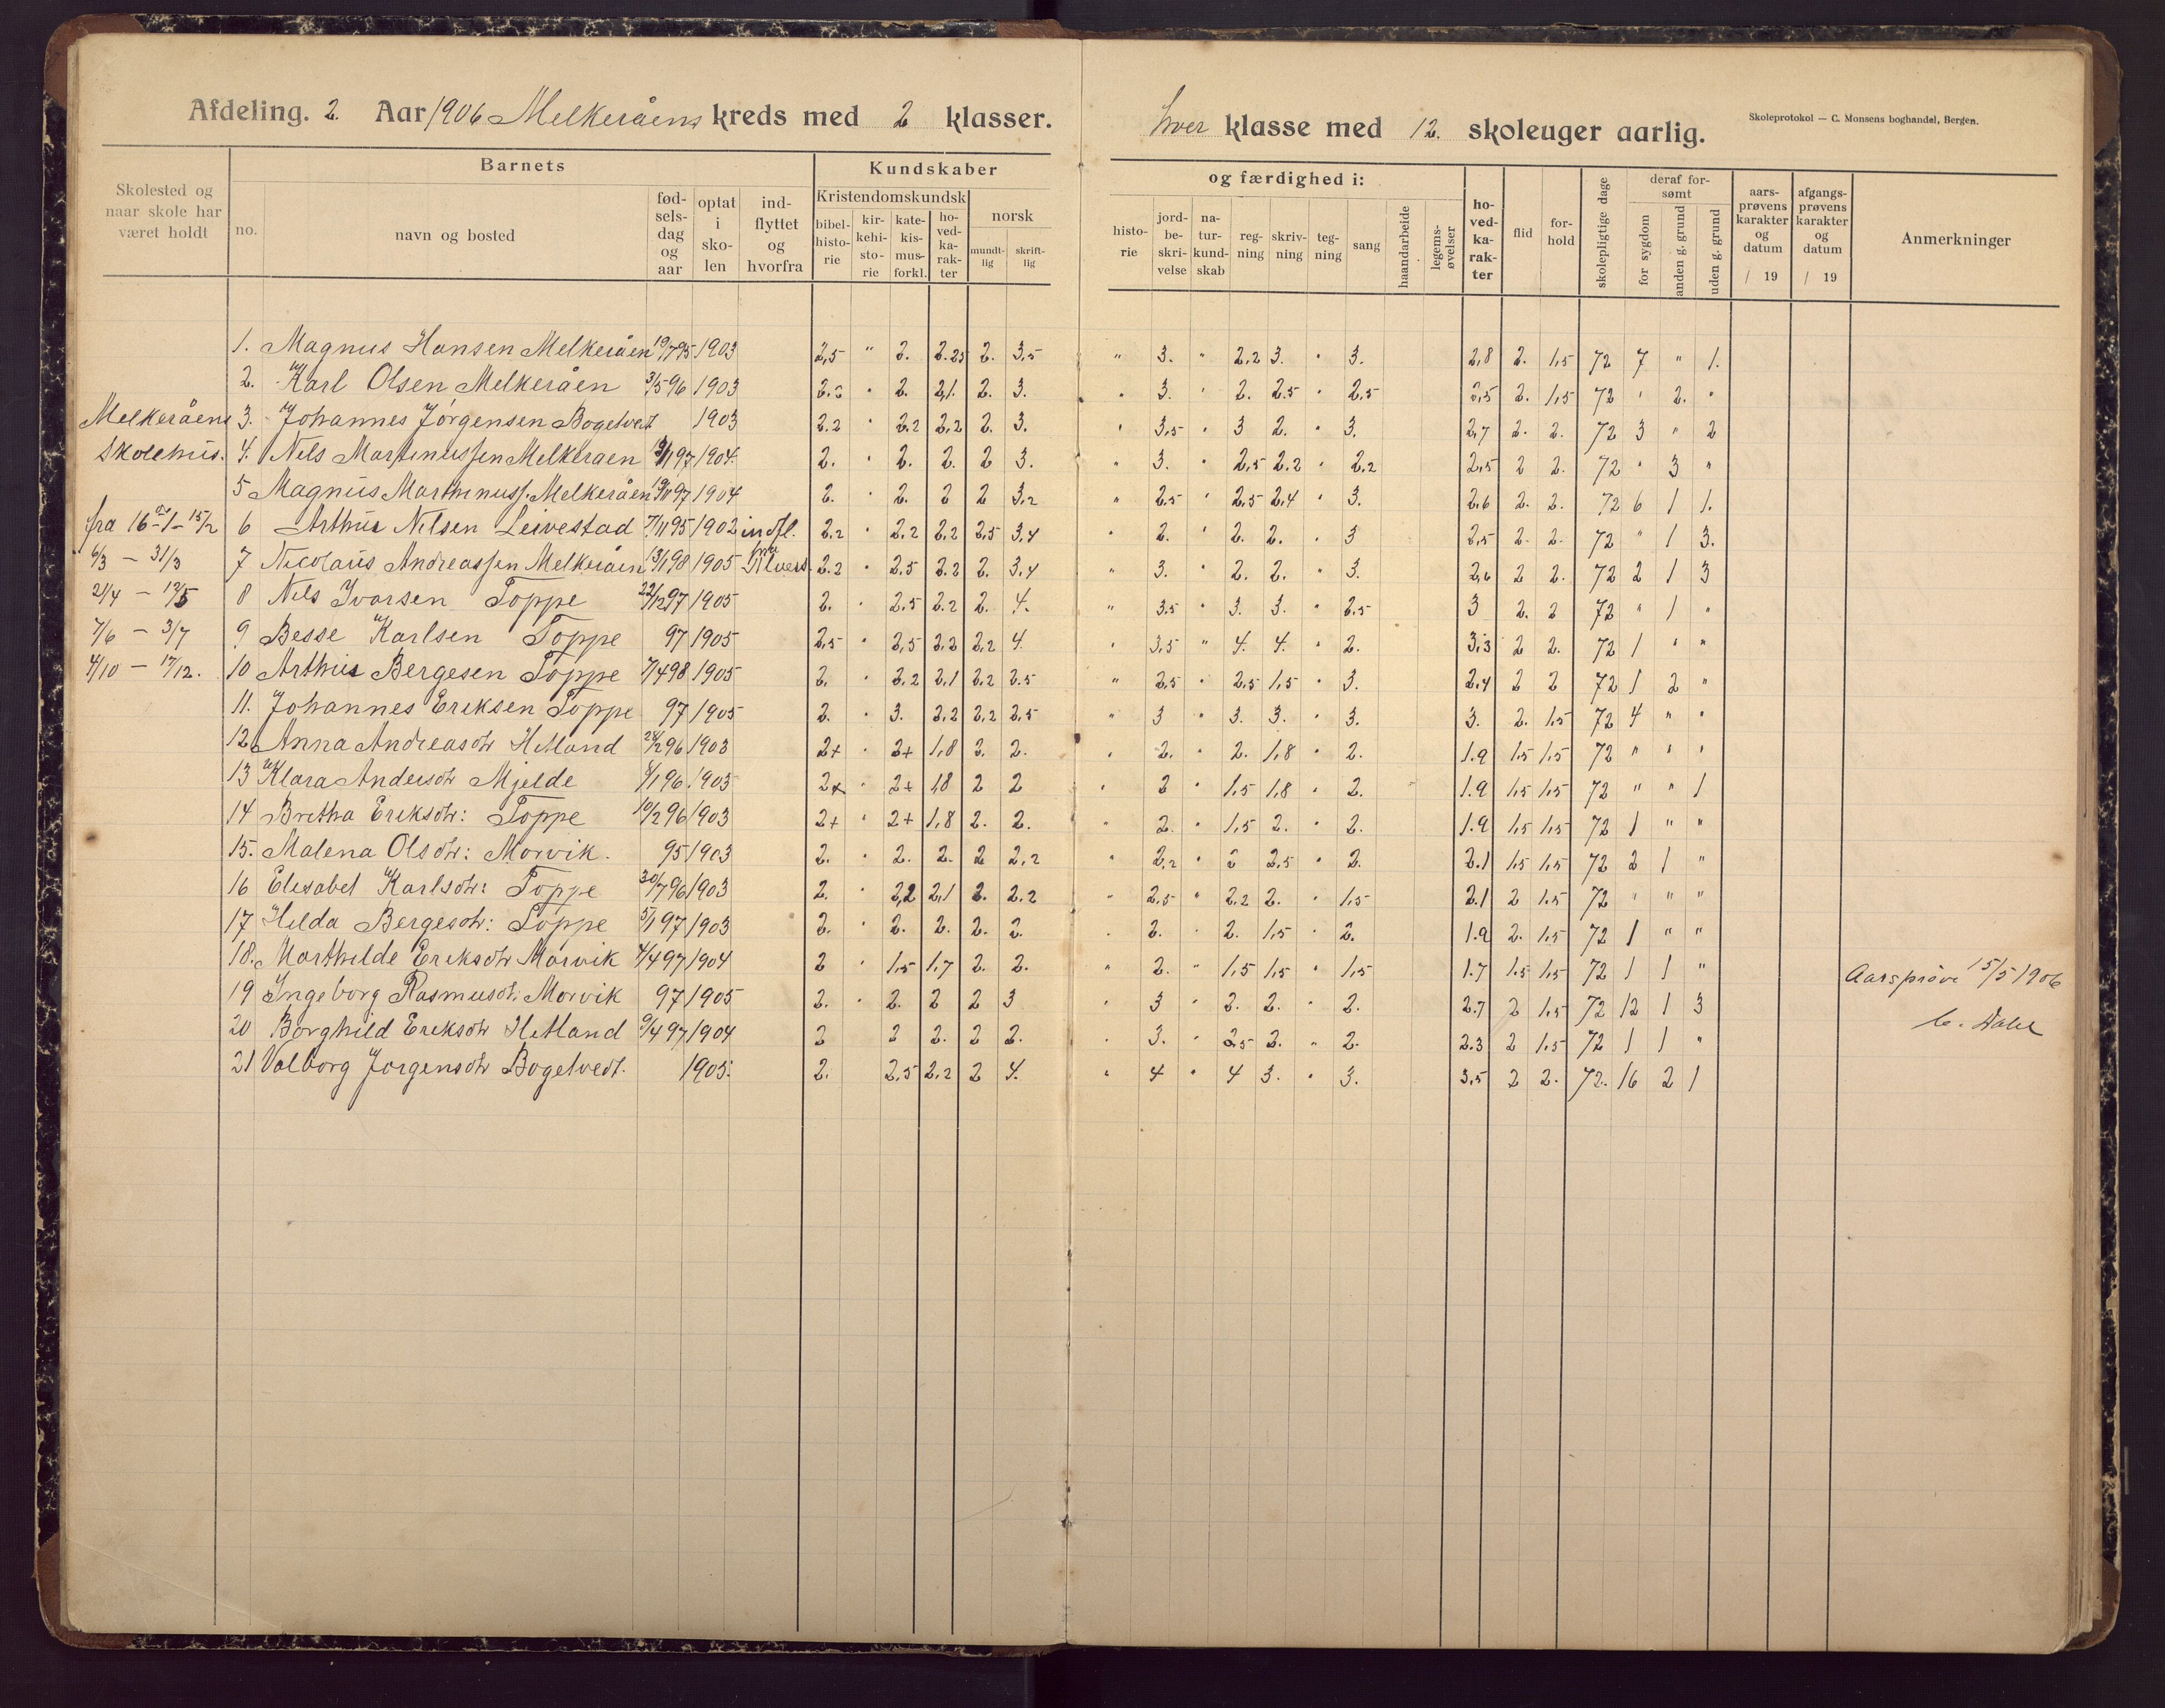 Afdeling. 2. Aar 1906 Melkeråens kreds med 2 klasser. hver klasse med 12. skoleuger aarlig.
Skoleprotokol — C. Monsens boghandel, Bergen.
Skolested og naar skole har været holdt
Barnets
no.
navn og bosted
fød-sels-dag og aar
optat i sko-len
ind-flyttet og hvorfra
Kundskaber
Kristendomskundsk
bibel-histo-rie
kir-kehi-sto-rie
kate-kis-mus-forkl.
ho-ved-ka-rak-ter
norsk
mundt-lig
skrift-lig
og færdighed i:
histo-rie
jord-be-skri-velse
na-tur-kund-skab
reg-ning
skriv-ning
teg-ning
sang
haandarbeide
legems-øvelser
ho-ved-ka-rak-ter
flid
for-hold
skolepligtige dage
deraf for-sømt
for sygdom
anden g. grund
uden g. grund
aars-prøvens karakter og datum / 19
afgangs-prøvens karakter og datum / 19
Anmerkninger
1. Magnus Hansen Melkeråen 19/7 95 1903 2,5 " 2. 2.25 2. 3,5 " 3. " 2.2 3. " 3. 2,8 2. 1,5 72 7 " 1.
2. Karl Olsen Melkeråen 3/5 96 1903 2. 2,1. 2. 3. " 3. " 2. 2.5 " 2,5 2,5 2. 1,5 72 " 2. "
Melkeråens 3. Johannes Jørgensen Bogetvedt 1903 2.2 " 2.2 2,2 2. 3. " 3,5 " 3 2. " 3. 2,7 2. 2. 72 3 " 2
Skolehus. 4. Nils Martinussen Melkeråen 97 1904. 2. " 2. 2. 2 3. " 3. " 2,5 2.2 " 2,2 2,5 2 2. 72 " 3 "
5 Magnus Marthinuss. Melkeråen 97 1904 2. " 2. 2 2 3,2 " 2.5 " 2.5 2,4 " 3. 2.6 2. 2. 72 6 1 1.
fra 16/1 - 15/2 6 Arthur Nilsen Leivestad 7/11 95 1902 indfl. 2,2 " 2,2 2,2 2,5 3,4 " 2. " 2. 2. " 3 2,5 2. 2. 72 " 1 3.
6/3 - 31/3 7 Nicolaus Andreassen Melkeråen 13/1 98 1905 fra Alvers. 2.2 " 2,5 2.2 2. 3,4 " 3. " 2. 2. " 3. 2,6 2 2. 72 2 1 3
21/4 - 12/5 8 Nils Ivarsen Toppe 22/12 97 1905 2. " 2,5 2.2 2. 4. " 3.5 " 3. 3. " 2.5 3 2. 2 72 " 1 "
7/6 - 3/7 9 Besse Karlsen Toppe 97 1905 2,5 " 2,5 2,2 2,2 4. " 3,5 " 4. 4. " 2. 3,3 2 2. 72 1 " "
4/10 - 17/12. 10 Arthur Bergesen Toppe 7/4 98 1905 2. " 2,2 2,1 2.2 2.5 " 2,5 " 2,5 1,5 " 3. 2.4 2 2 72 1 2 "
11. Johannes Eriksen Toppe 97 1905 2. " 3. 2,2 2,2 2,5 " 3 " 3. 3. " 3. 3. 2. 1.5 72 4 " "
12 Anna Andreasdtr Hetland 28/12 96 1903 2+ " 2+ 1,8 2. 2. " 2. " 2. 1,8 " 2. 1.9 1,5 1,5 72 " " "
13 Klara Andersdtr Mjelde 6/1 96 1903 2+ " 2+ 1,8 2 2 " 2 " 1,5 1,8 " 2. 1.9 1,5 1,5 72 " " 1
14 Bretha Eriksdtr: Toppe 10/2 96 1903 2+ " 2+ 1,8 2. 2. " 2. " 1,5 2. " 2. 1.9 1,5 1,5 72 1 " "
15. Malena Olsdtr: Morvik. 95 1903 2. " 2. 2. 2 2,2 " 2,2 " 2 2,5 " 2. 2.1 1,5 1,5 72 2 1 "
16 Elisabet Karlsdtr: Toppe 30/7 96 1903 2. " 2,2 2,1 2. 2.2 " 2,5 " 2.2 2. " 1,5 2.1 2 1.5 72 " " "
17 Hilda Bergesdtr: Toppe 5/1 97 1903 2. " 2. 2. 2. 2. " 2. " 2. 1,5 " 2. 1.9 2. 1,5 72 1 " "
18. Marthilde Eriksdtr Morvik 4/4 97 1904 2 " 1,5 1,7 2. 2. " 2. " 1,5 1,5 " 1,5 1.7 1.5 1,5 72 1 1 "
19 Ingeborg Rasmusdt. Morvik 97 1905 2. " 2. 2 2 3 " 3 " 2. 2. " 2. 2.7 2 1,5 72 12 1 3
Aarsprøve 15/5 1906
20 Borghild Eriksdtr Hetland 9/4 97 1904 2 2 2. 2 2. " 3. " 2,5 2. " 2. 2.3 2 1.5 72 1 1 "
21 Valborg Jørgensdtr Bogetvedt. 1905. 2. 2,5 2,2 2 4. " 4 " 4 3. " 3. 3,5 2 2. 72. 16 2 1